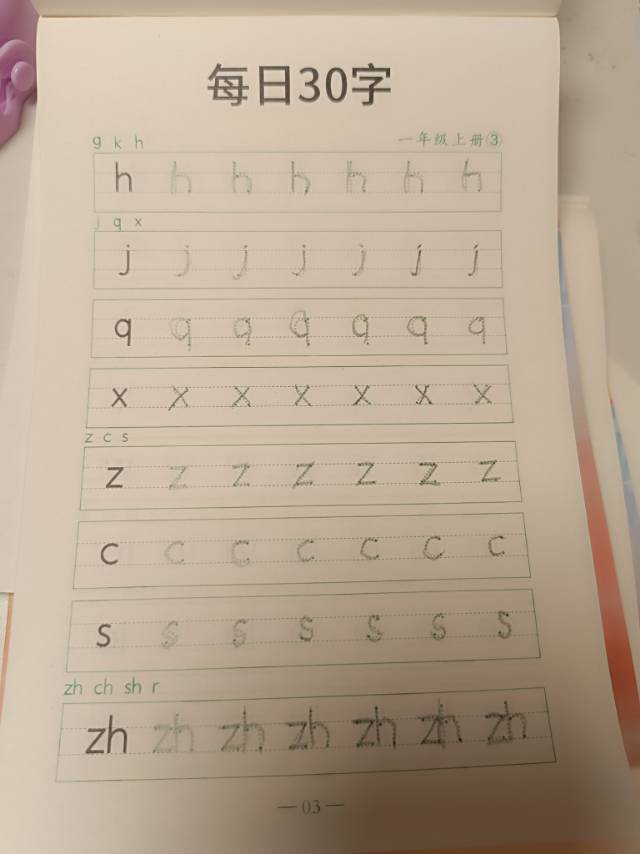 每日30字
g k h 一年级上册③
h h h h h h h
j q x
j j j j j j j
q q q q q q q
x x x x x x x
z c s
z z z z z z z
c c c c c c c
s s s s s s s
zh ch sh r
zh zh zh zh zh zh zh
— 03 —